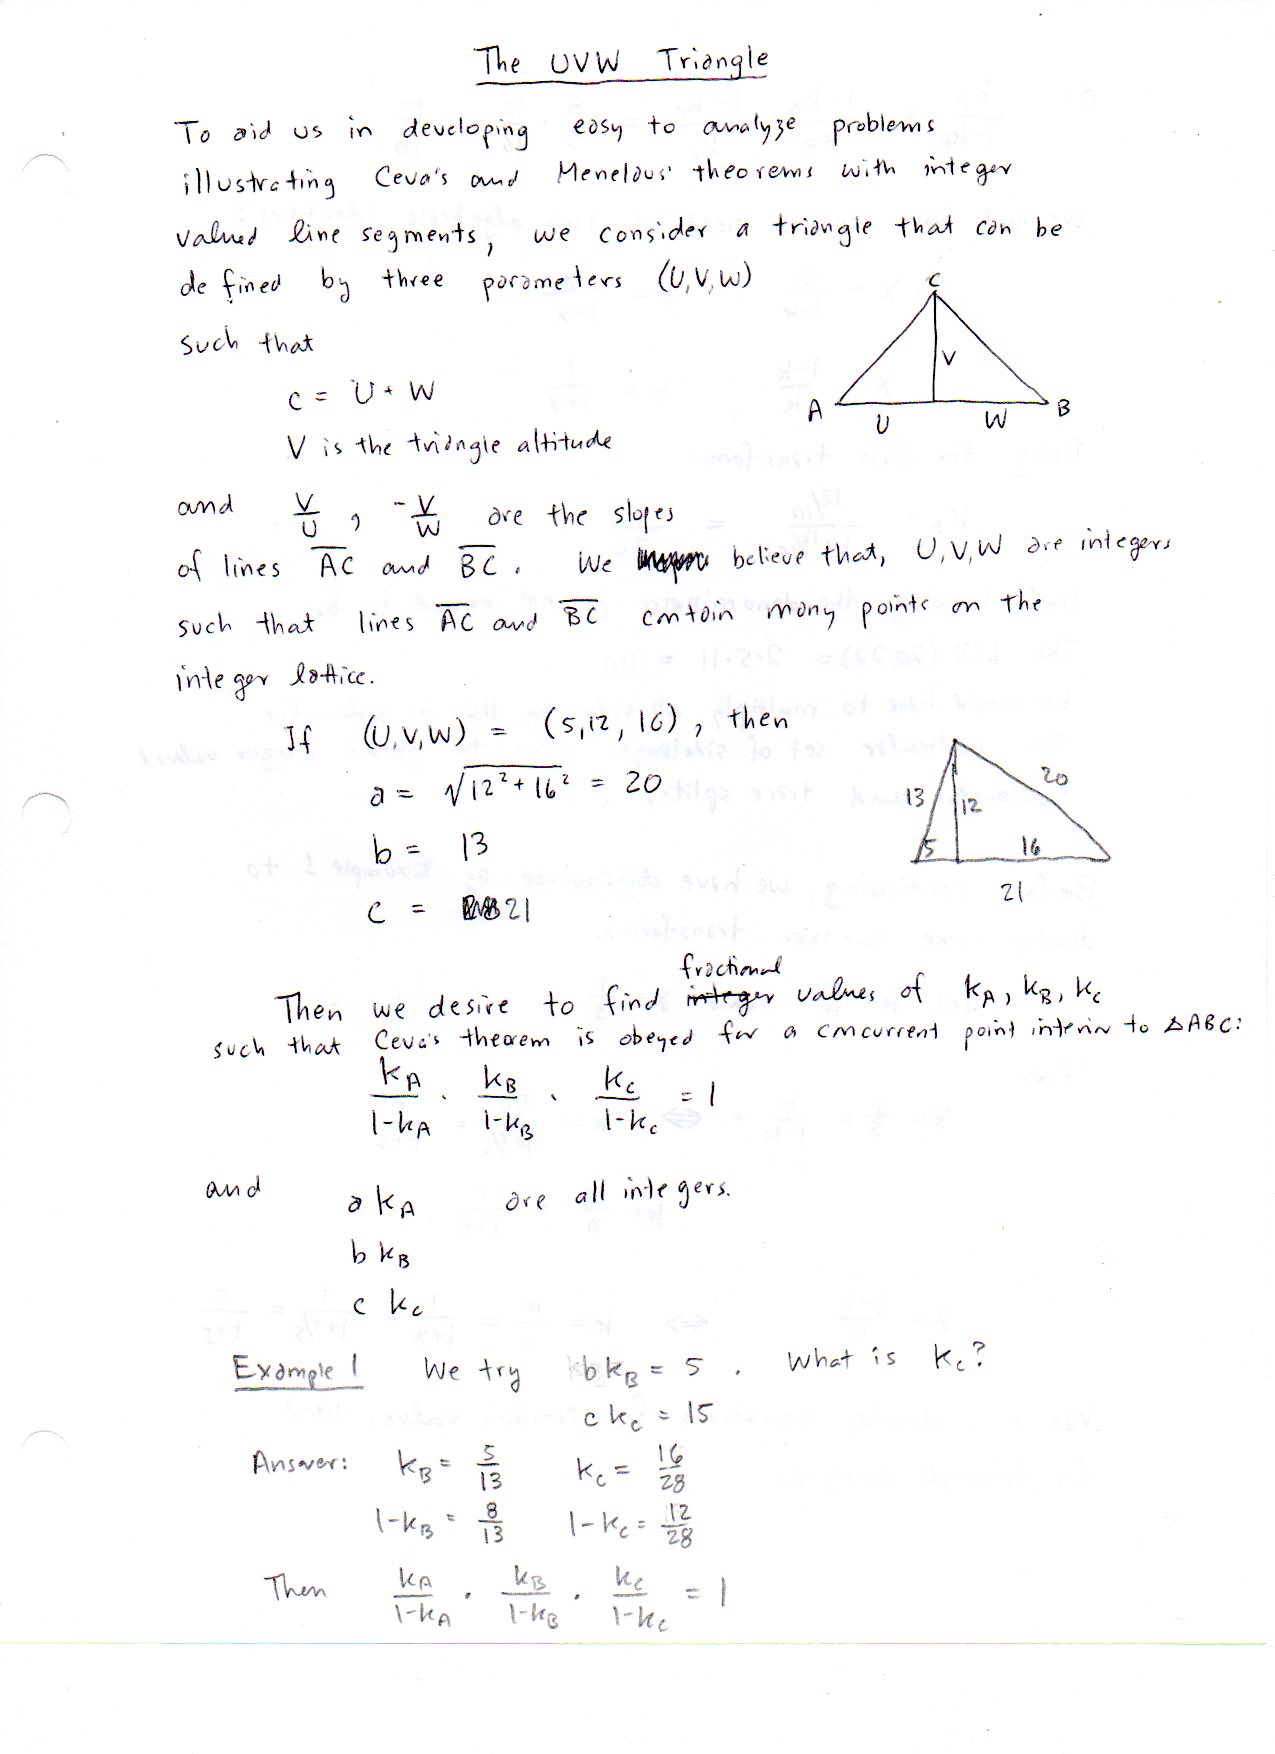 The UVW Triangle
To aid us in developing easy to analyze problems
illustrating Ceva's and Menelaus' theorems with integer
valued line segments, we consider a triangle that can be
defined by three parameters (U,V,W)
such that
c = U + W
V is the triangle altitude
C
V
A
U
W
B
and V/U , -V/W are the slopes
of lines AC and BC. We believe that, U,V,W are integers
such that lines AC and BC contain many points on the
integer lattice.
If (U,V,W) = (5,12,16), then
a = √12² + 16² = 20
b = 13
c = 21
13
12
20
5
16
21
fractional
Then we desire to find integer values of kA, kB, kC
such that Ceva's theorem is obeyed for a concurrent point interior to ΔABC:
kA/1-kA · kB/1-kB · kC/1-kC = 1
and a kA are all integers.
b kB
c kC
Example 1 We try b kB = 5 . What is kC?
c kC = 15
Answer: kB = 5/13 kC = 16/28
1-kB = 8/13 1-kC = 12/28
Then kA/1-kA · kB/1-kB · kC/1-kC = 1